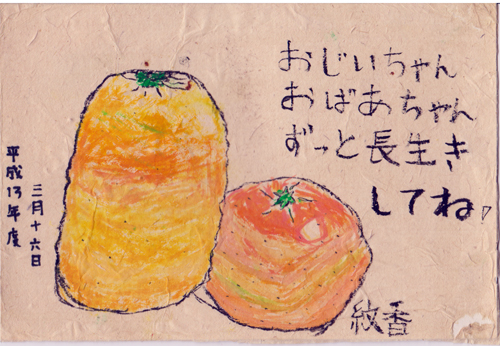 おじいちゃん
おばあちゃん
ずっと長生き
してね!
三月十六日
平成13年度
紋香